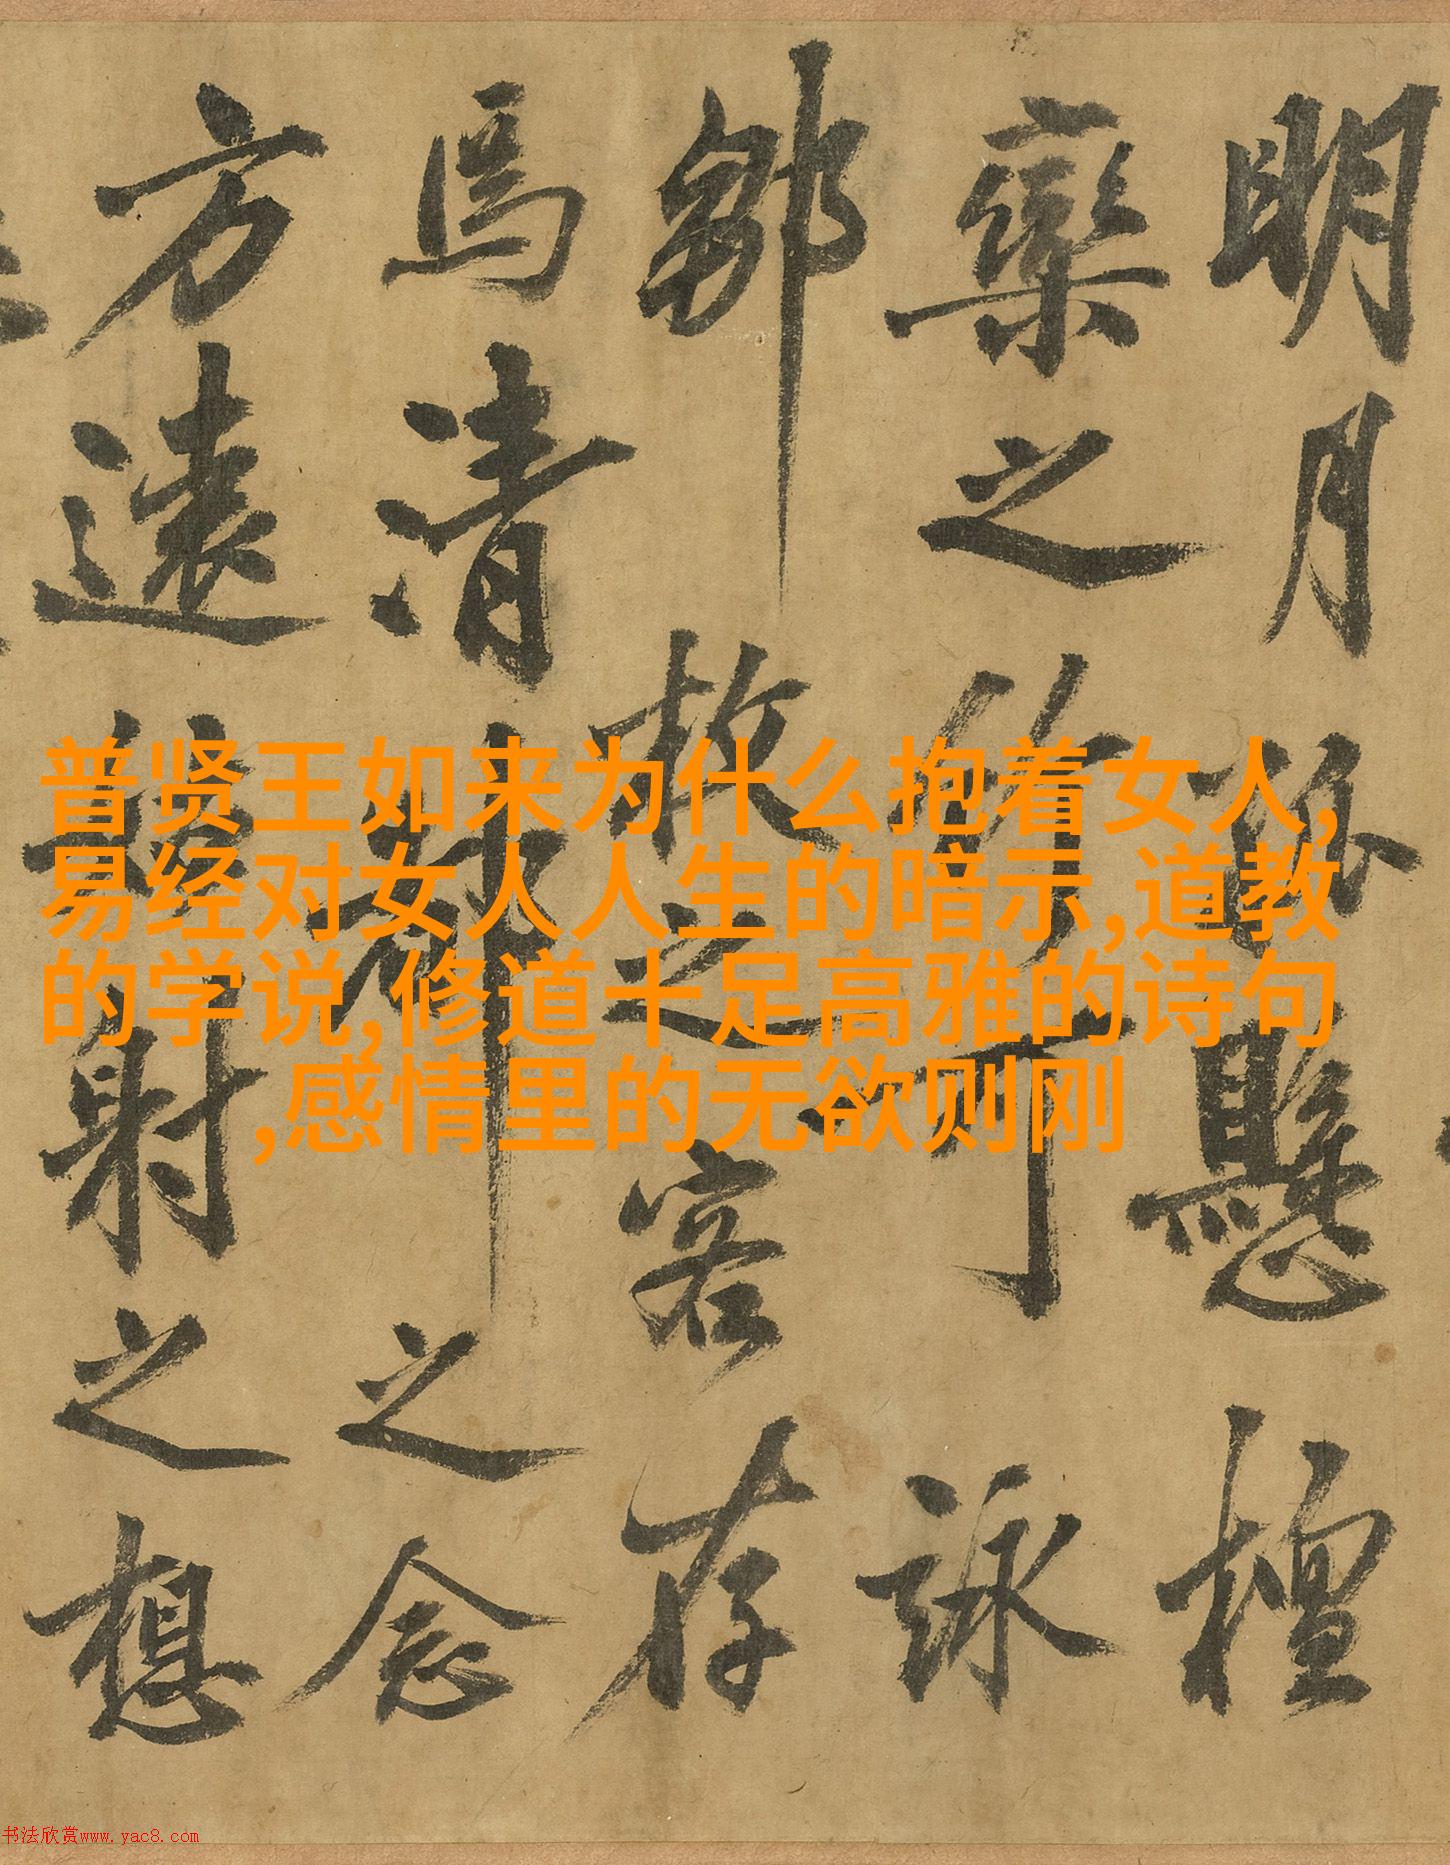 明月假懸檀
欒之作可詠
鄒故之客存
馬清都之念
方遠姑射之想
普贤王如来为什么抱着女人,
易经对女人人生的暗示,道教
的学说,修道十足高雅的诗句
,感情里的无欲则刚
书法欣赏www.yac8.com